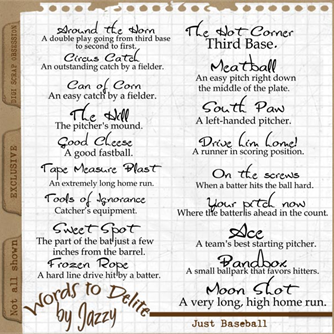 Around the Horn
A double play going from third base
to second to first.
Circus Catch
An outstanding catch by a fielder.
Can of Corn
An easy catch by a fielder.
The Hill
The pitcher's mound.
Good Cheese
A good fastball.
Tape Measure Blast
An extremely long home run.
Tools of Ignorance
Catcher's equipment.
Sweet Spot
The part of the bat just a few
inches from the barrel.
Frozen Rope
A hard line drive hit by a batter.
The Hot Corner
Third Base.
Meatball
An easy pitch right down
the middle of the plate.
South Paw
A left-handed pitcher.
Drive him home!
A runner in scoring position.
On the screws
When a batter hits the ball hard.
Your pitch now
Where the batter is ahead in the count.
Ace
A team's best starting pitcher.
Bandbox
A small ballpark that favors hitters.
Moon Shot
A very long, high home run.
DIGI SCRAP OBSESSION
EXCLUSIVE
Not all shown
Words to Delite
by Jazzy
Just Baseball